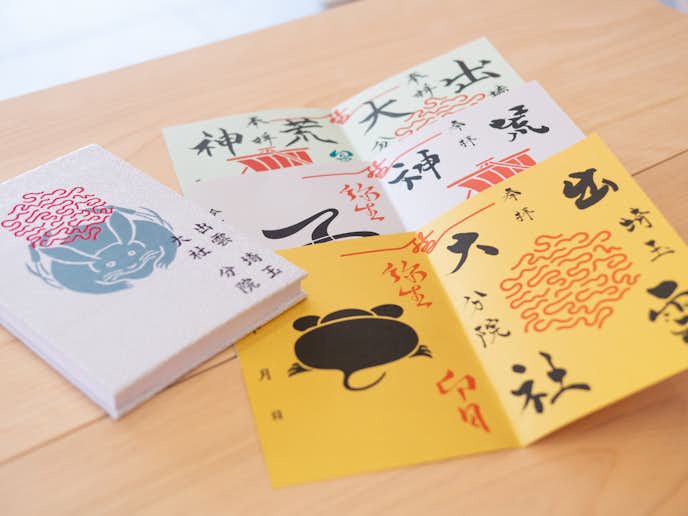 出雲
大社
埼玉
分院
奉拝
出
大
分
奉拝
荒
神
奉拝
荒
神
弥生
子
奉拝
出雲
埼玉
大社
分院
弥生
月 日